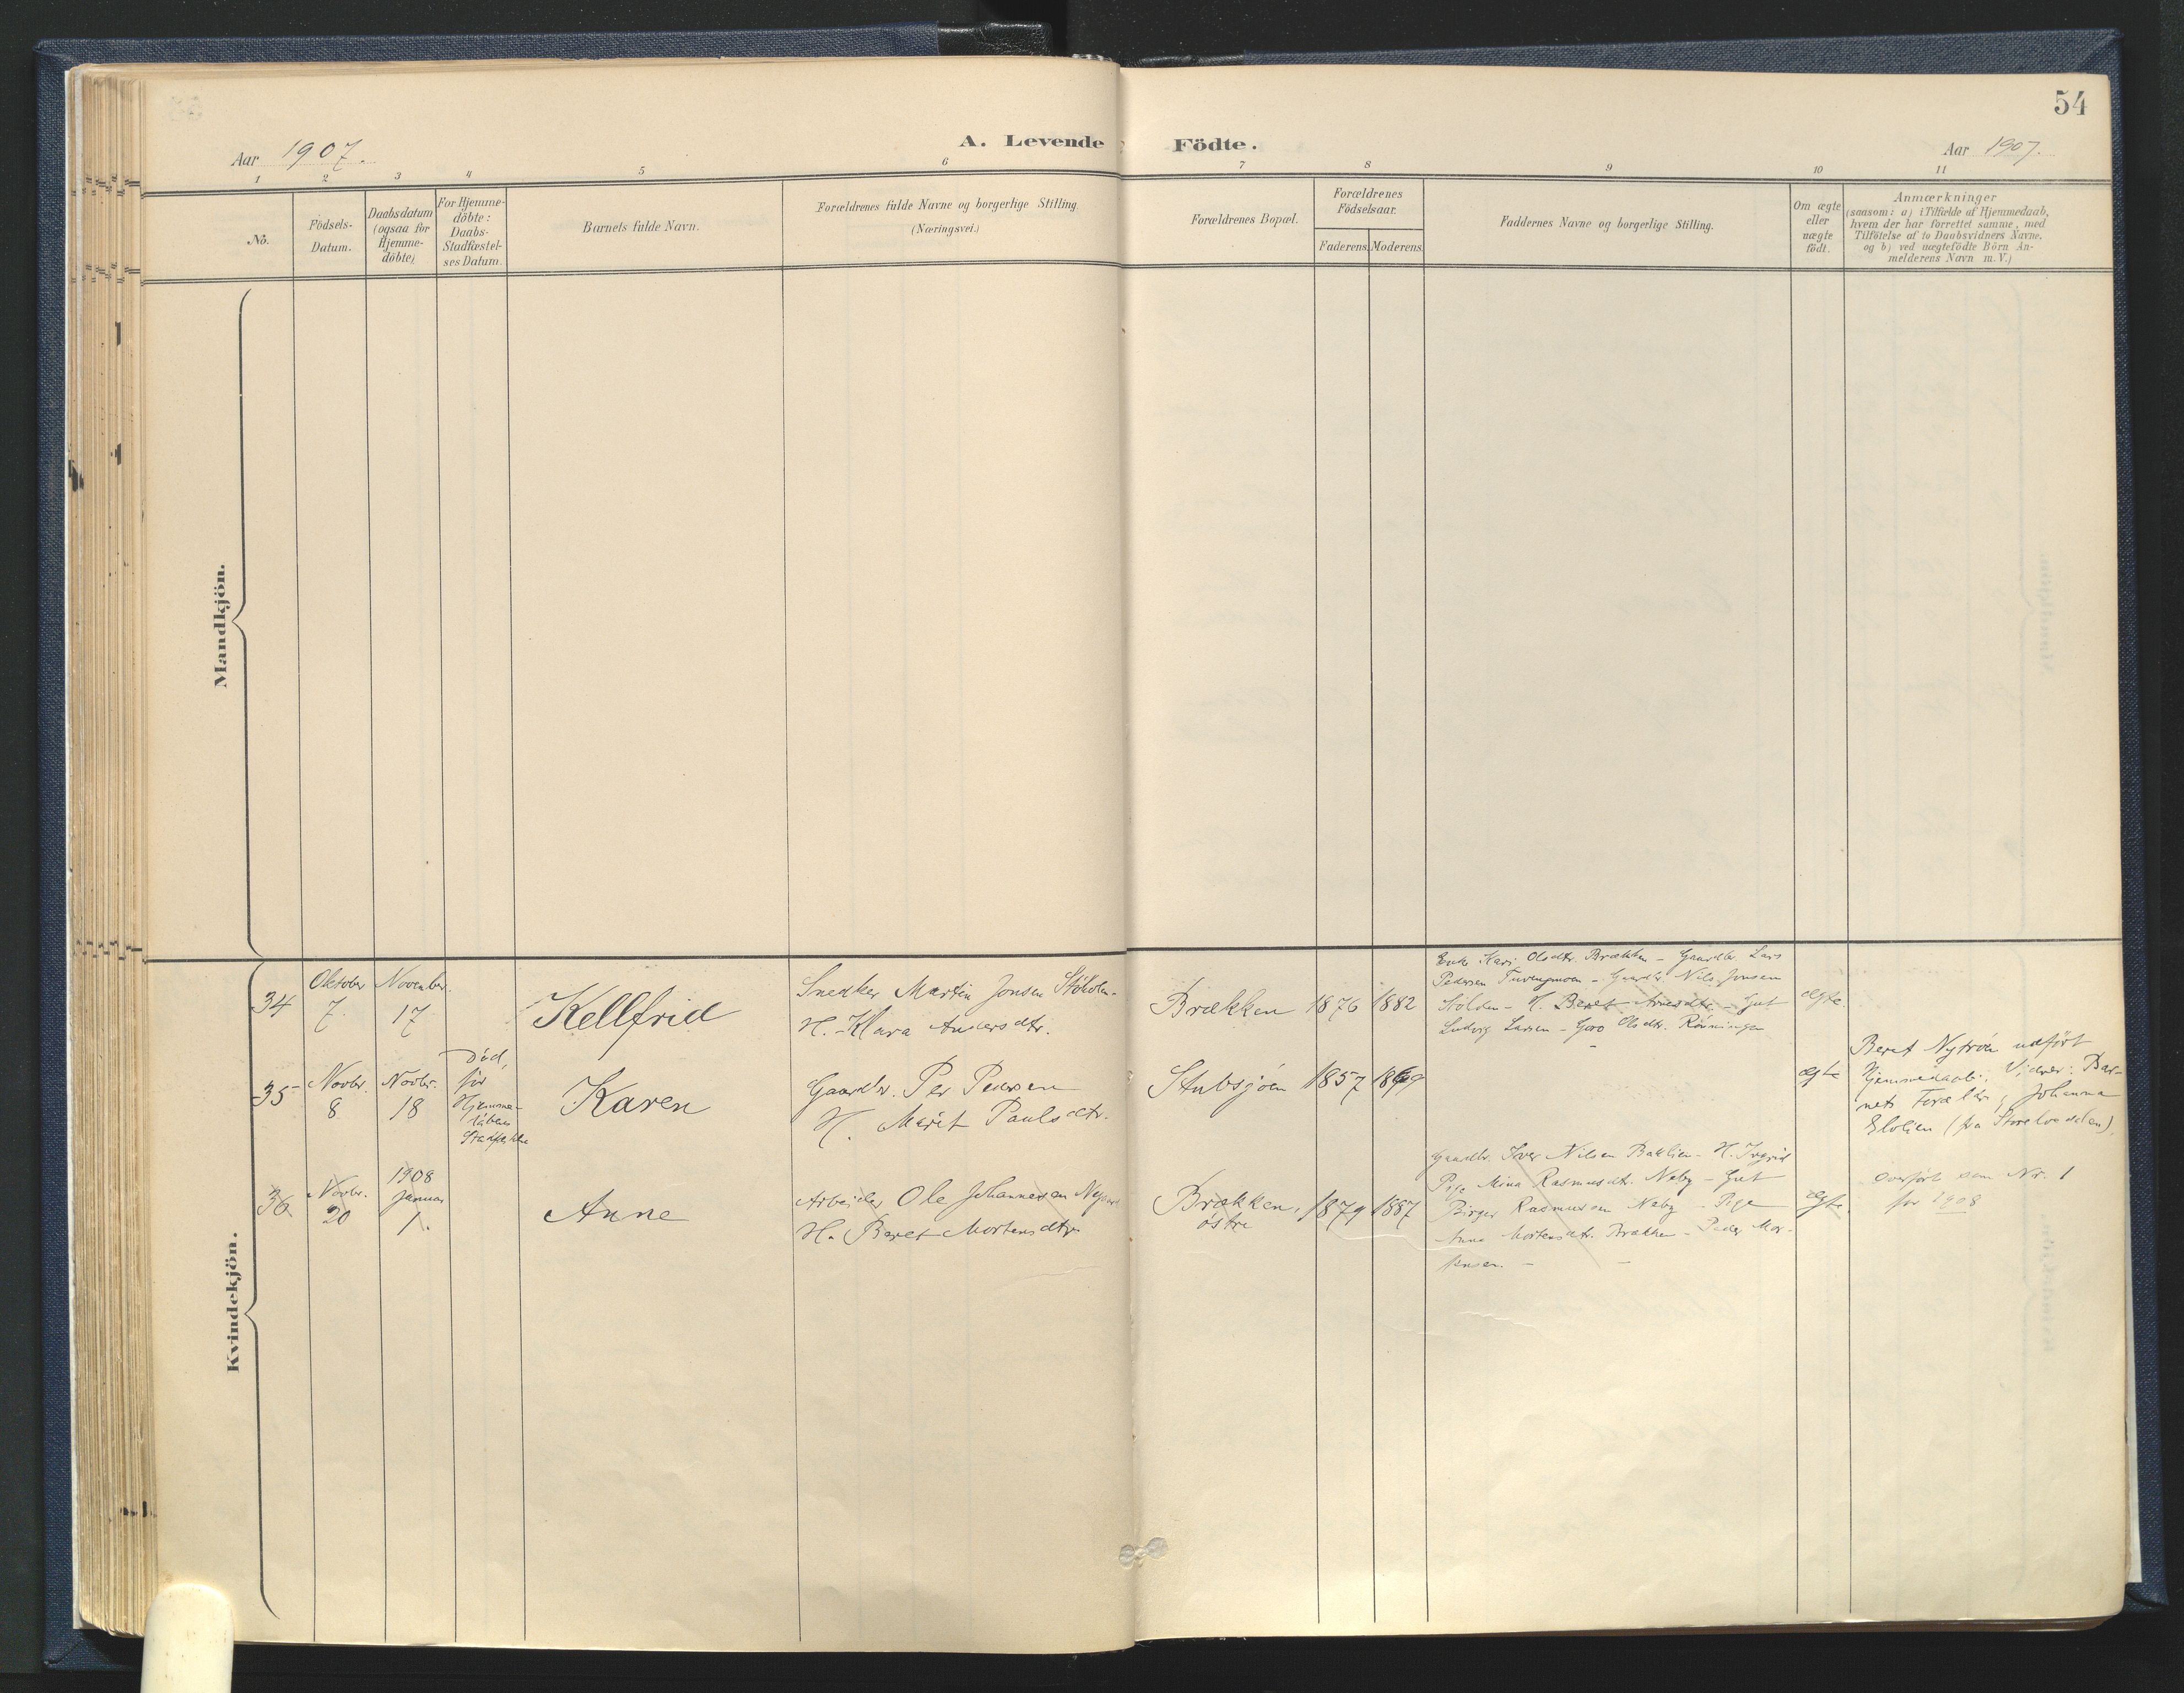 54
Aar 1907.
A. Levende Födte.
Aar 1907.
1 2 3 4 5 6 7 8 9 10 11
No.
Födsels-
Datum.
Daabsdatum
(ogsaa for
Hjemme-
döbte)
For Hjemme-
döbte:
Daabs-
Stadfæstel-
ses Datum.
Barnets fulde Navn.
Forældrenes fulde Navne og borgerlige Stilling
(Næringsvei.)
Forældrenes Bopæl.
Forældrenes
Födselsaar.
Faderens.
Moderens.
Faddernes Navne og borgerlige Stilling.
Om ægte
eller
uægte
födt.
Anmærkninger
(saasom: a) i Tilfælde af Hjemmedaab,
hvem der har forrettet samme, med
Tilföielse af to Daabsvidners Navne.
og b) ved uegtefödte Börn An-
melderens Navn m. V.)
Mandkjön.
Kvindekjön.
34
Oktober
7.
November
17
Kellfrid
Snedker Martin Jonsen
H. Klara Andersdtr.
Brækken
1876
1882
Enke Kari Olsdtr. Brækken - Gaardbr. Lars
Pedersen - Gaardbr. Nils Jonsen
Stölden - H. Beret - Gut
Ludvig Larsen - Goro Olsdtr. Rönningen
ægte.
35
Novbr.
8
Novbr.
18
Död
för
Hjemme-
daabens
Karen
Gaardbr. Per Pedersen
H. Marit Paulsdtr.
Stubsjöen
1857
1869
ægte
Beret Nytröen udfört
Hjemmedaab. Vidner: Bar-
nets Forældre, Johanna
(fra
36
Novbr.
20
1908
Januar
1.
Anne
Arbeider Ole Johannesen
H. Beret Mortensdtr
Brækken,
östre
1879
1887
Gaardbr. Iver Nilsen Baklien - H. Ingrid
Pige Mina Rasmusdtr. Neby - Gut
Birger Rasmussen Neby - Pige
Anna Mortensdtr. Brækken - Peder Mor-
tensen. -
ægte.
Overfört som Nr. 1
for 1908